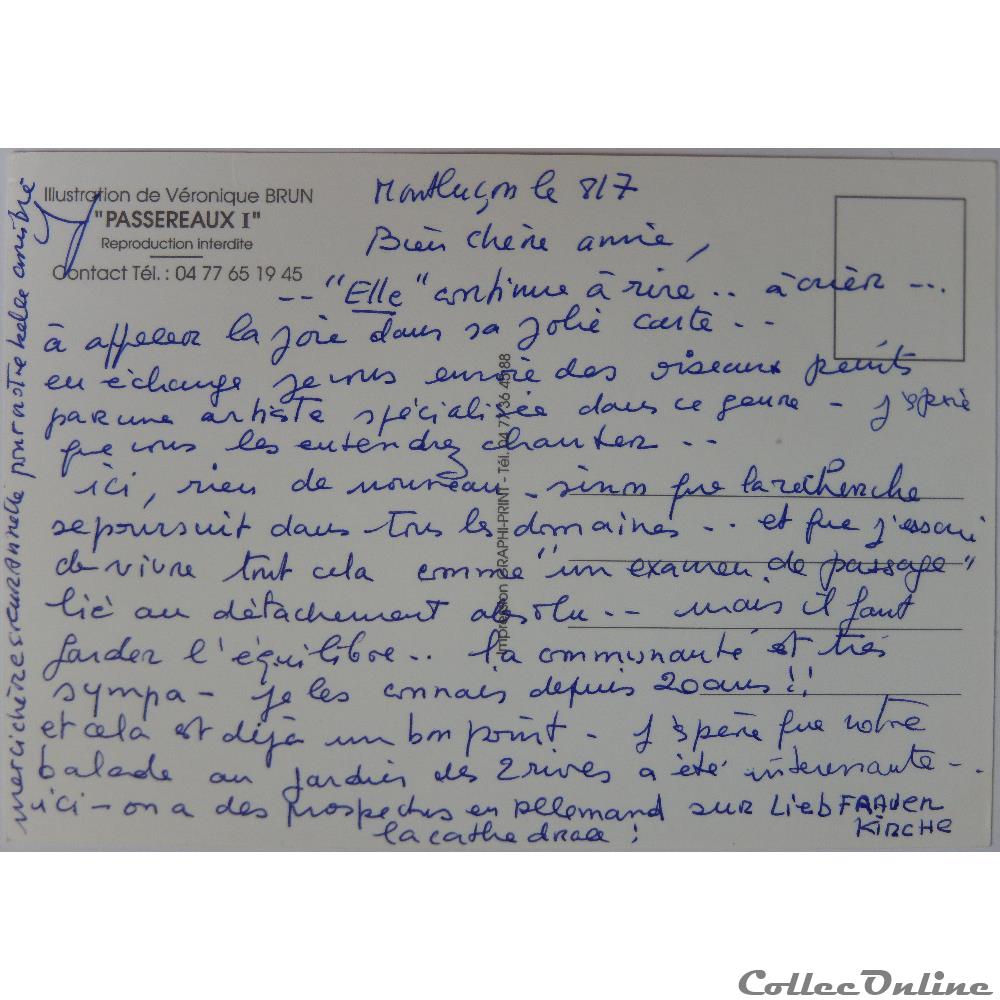 Illustration de Véronique BRUN
"PASSEREAUX I"
Reproduction interdite
Contact Tél. : 04 77 65 19 45
Montluçon le 8/7
Bien chère annie,
-- "Elle" continue à rire .. à crier ...
à appeler la joie dans sa jolie carte - -
en échange je vous envoie des oiseaux peints
par une artiste spécialisée dans ce genre - J'spère
que vous les entendrez chanter - -
ici, rien de nouveau - sinon que la recherche
se poursuit dans tous les domaines .. et que j'essaie
de vivre tout cela comme "un examen de passage"
lié au détachement absolu .-- mais il faut
garder l'équilibre .. la communauté est très
sympa - je les connais depuis 20 ans !!
et cela est déjà un bon point - J'spère que votre
balade au jardin des 2 rives a été interessante - .
ici - on a des prospectus en Allemand sur LiebFRAUEN
KIRCHE
la cathedrale !
merci chère soeur Annelle pour notre belle amitié
Impression GRAPHI-PRINT - Tél. 04 77 36 45 88
CollecOnline